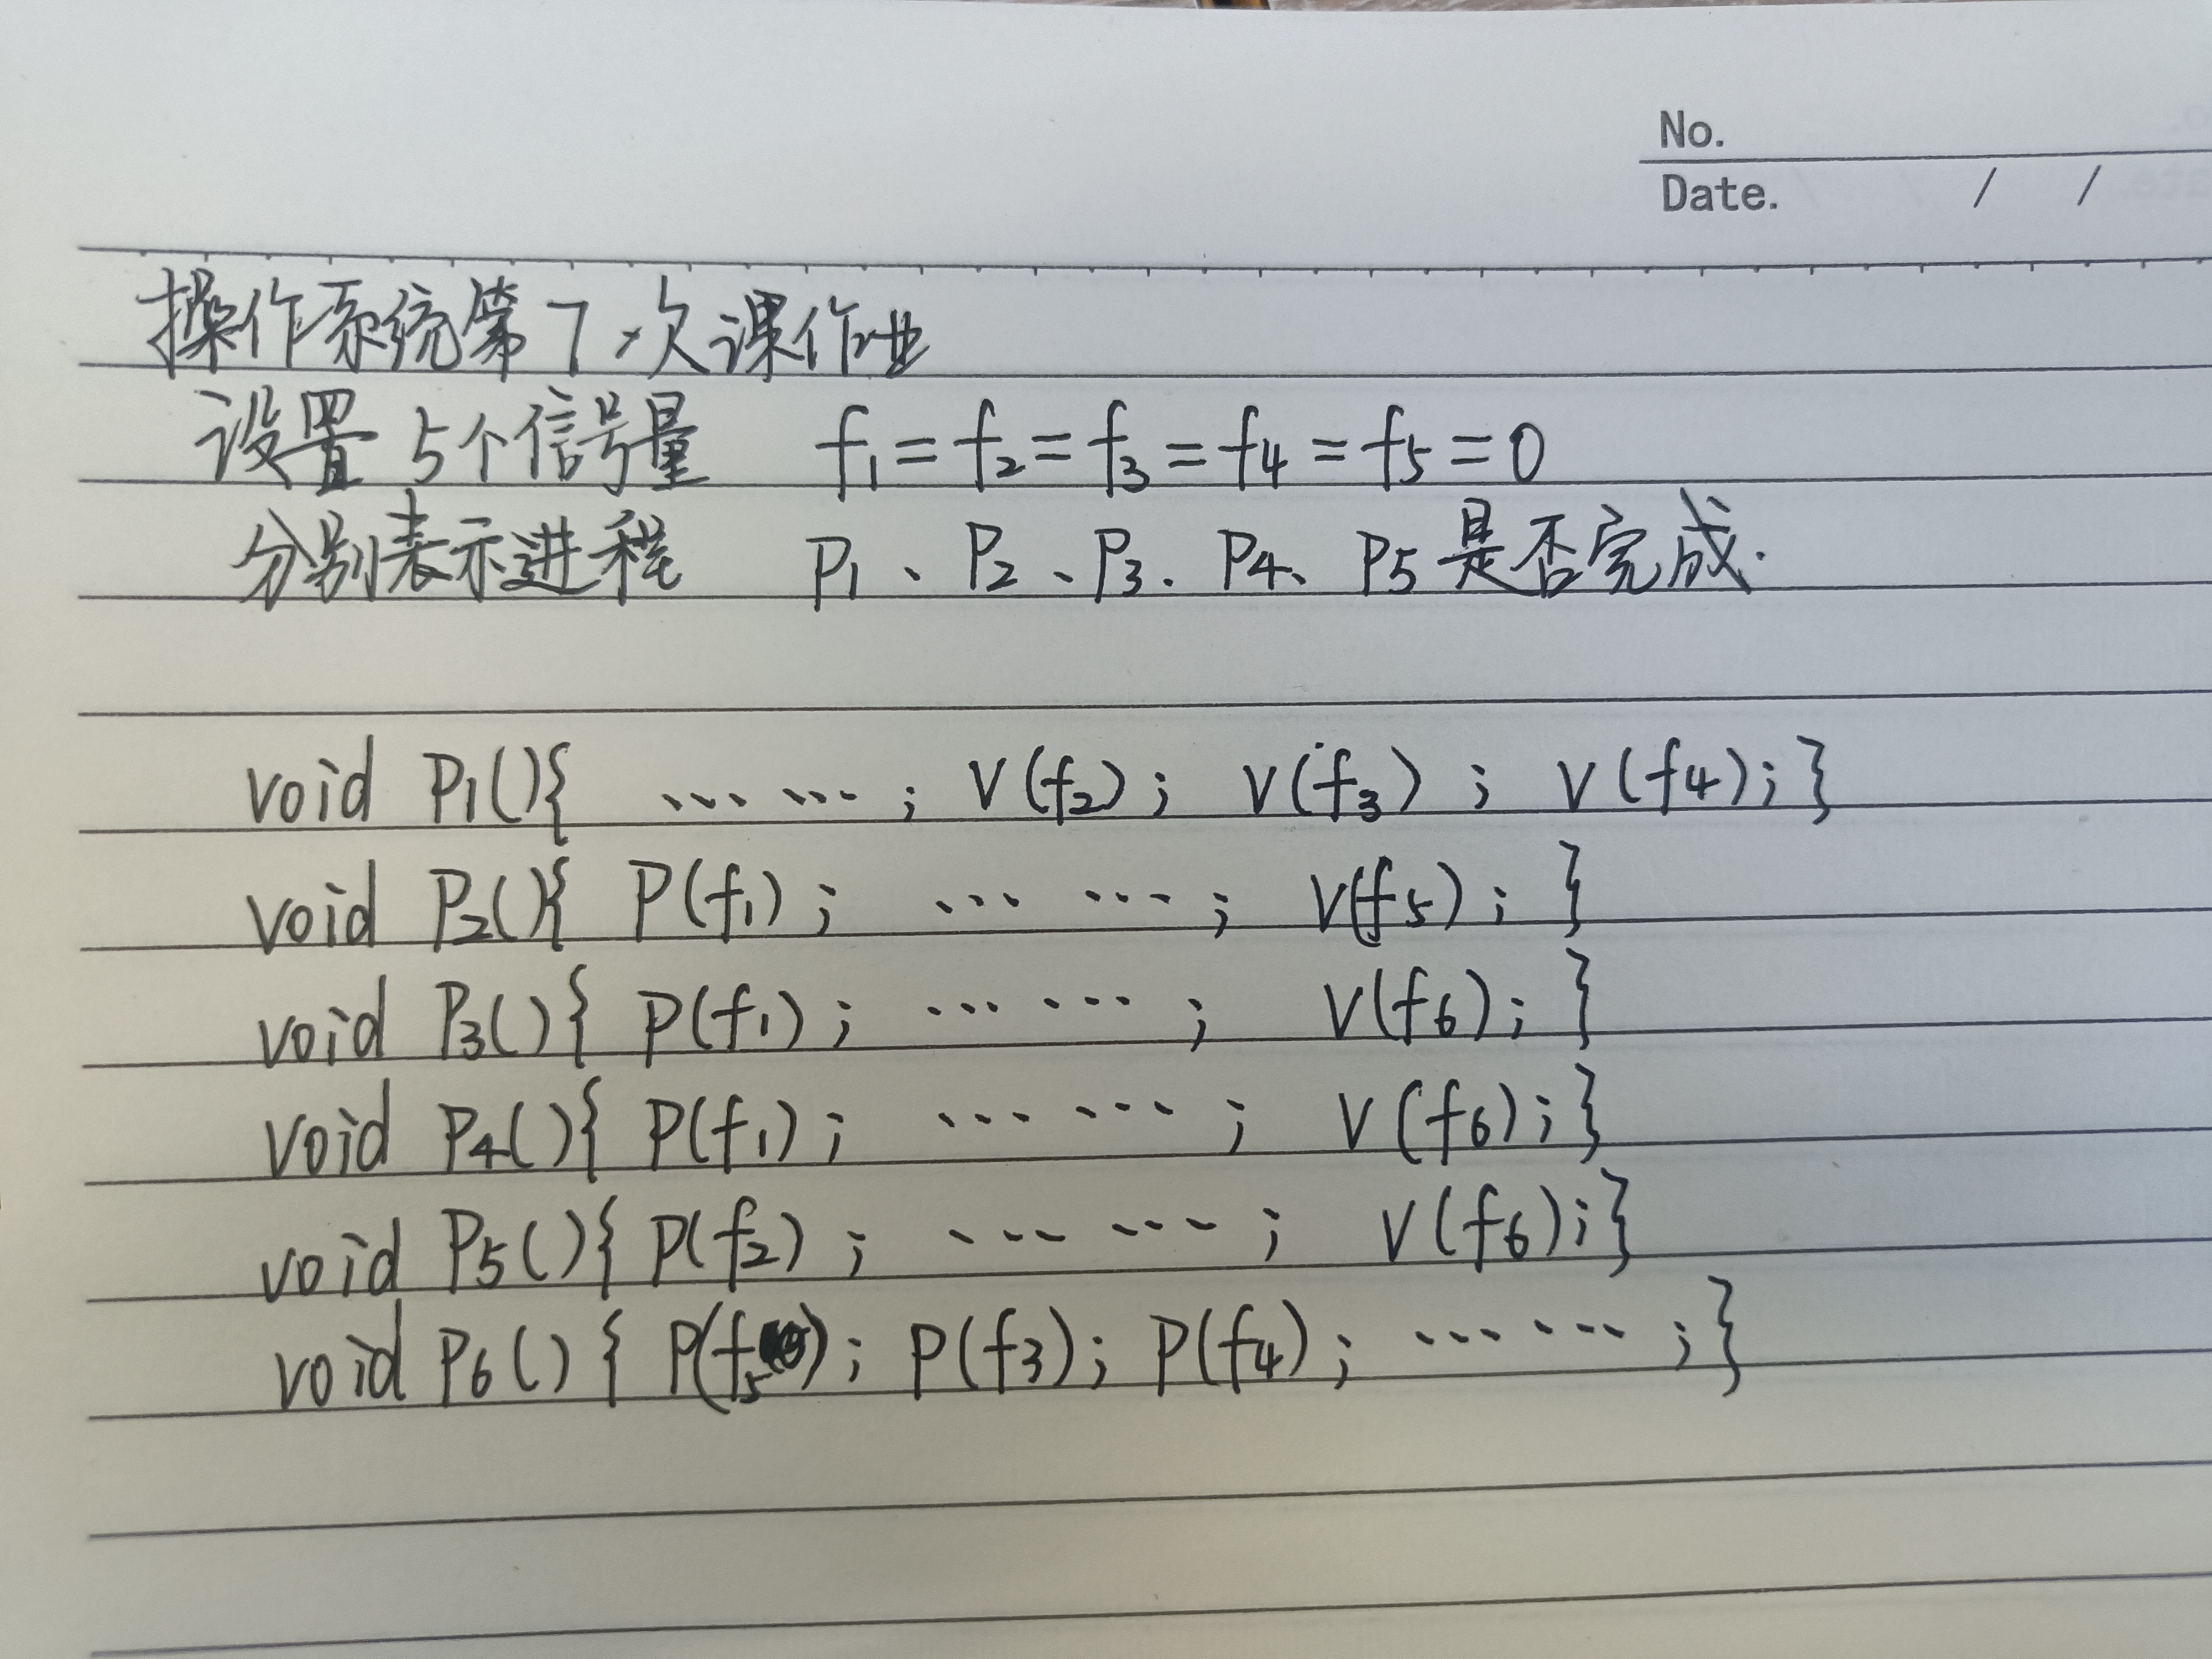 No.
Date. / /
操作系统第7次课作业
设置5个信号量 f1=f2=f3=f4=f5=0
分别表示进程 P1、P2、P3、P4、P5是否完成.
void P1(){ …… ; V(f2); V(f3) ; V(f4);}
void P2(){ P(f1); …… ; V(f5); }
void P3(){ P(f1); …… ; V(f6); }
void P4(){ P(f1); …… ; V(f6);}
void P5(){ P(f2) ; …… ; V(f6);}
void P6() { P(f5); P(f3); P(f4); …… ;}